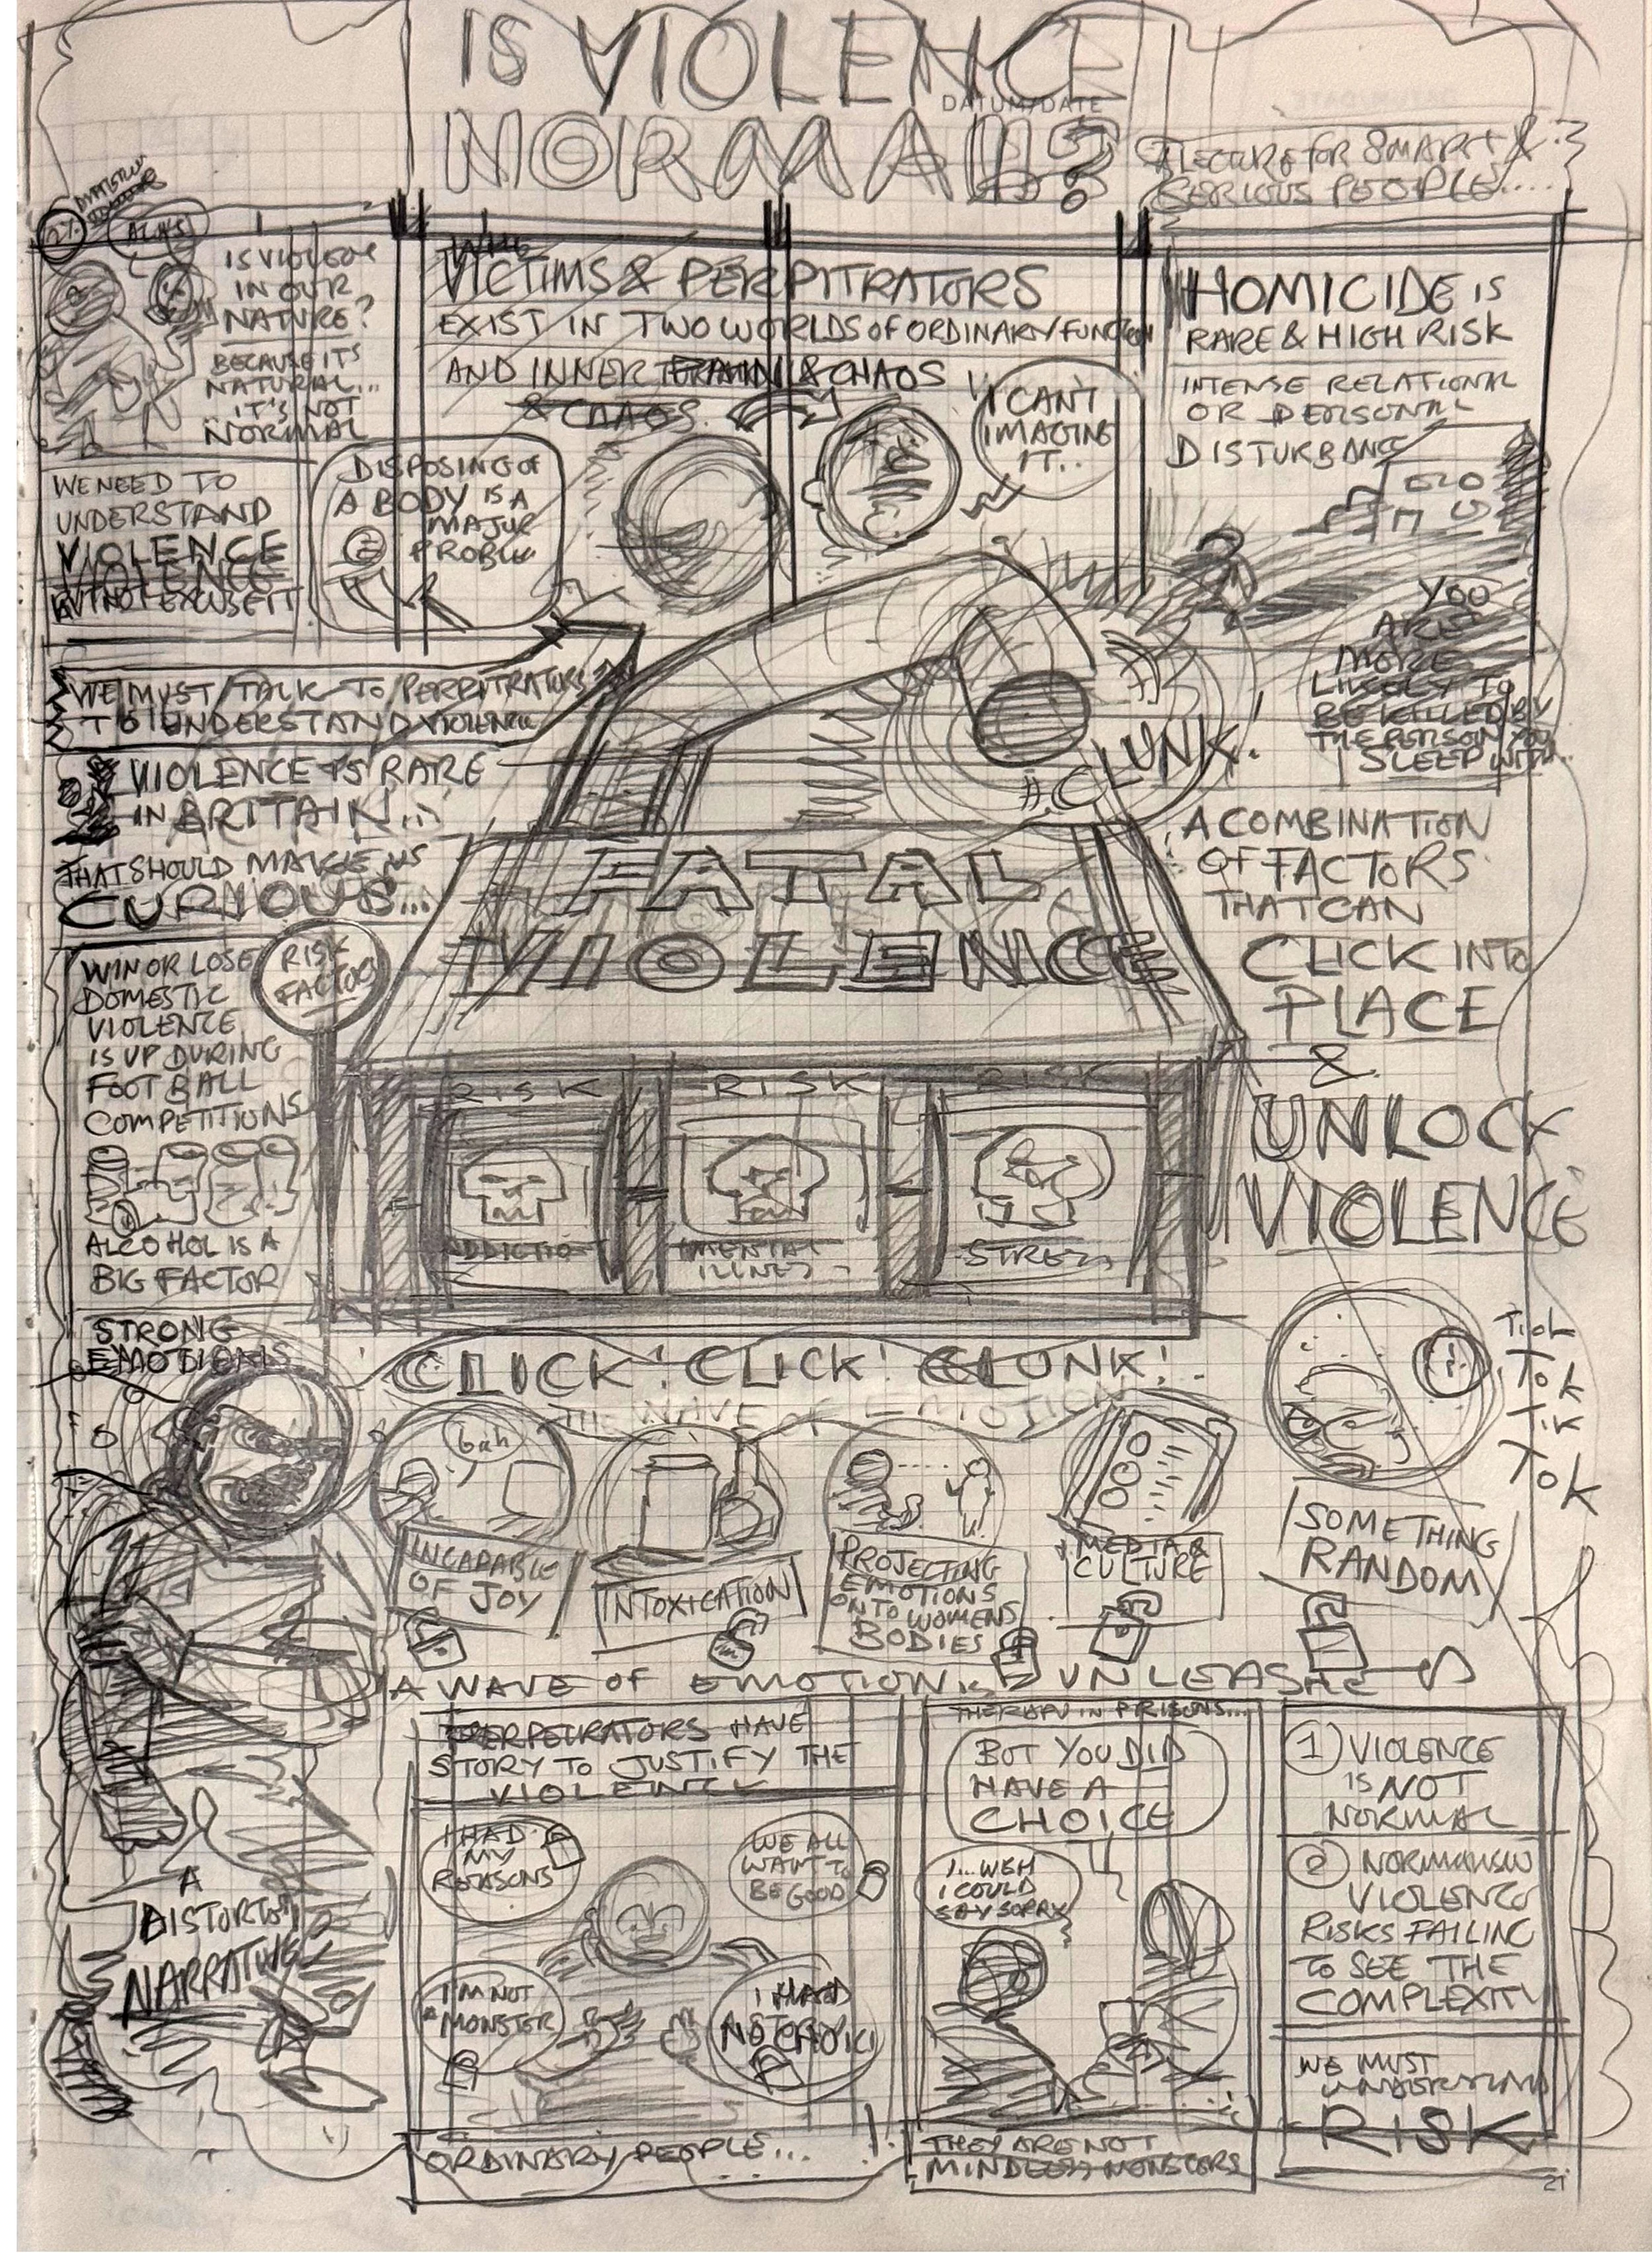 IS VIOLENCE
NORMAL?
DATUM/DATE
A LECTURE FOR SMART &
SERIOUS PEOPLE....
IS VIOLENCE
IN OUR
NATURE?
BECAUSE ITS
NATURAL...
IT'S NOT
NORMAL
WE NEED TO
UNDERSTAND
VIOLENCE
VIOLENCE
BUT NOT EXCUSE IT
VICTIMS & PERPITRATORS
EXIST IN TWO WORLDS OF ORDINARY FUNCTION
AND INNER & CHAOS
& CHAOS.
DISPOSING OF
A BODY IS A
MAJOR
PROBLEM
I CAN'T
IMAGINE
IT..
HOMICIDE IS
RARE & HIGH RISK
INTENSE RELATIONAL
OR PERSONAL
DISTURBANCE
YOU
ARE
MORE
LIKELY TO
BE KILLED BY
THE PERSON YOU
SLEEP WITH..
WE MUST TALK TO PERPITRATORS
TO UNDERSTAND VIOLENCE
VIOLENCE IS RARE
IN BRITAIN...
THAT SHOULD MAKE US
CURIOUS...
CLUNK!
FATAL
VIOLENCE
A COMBINATION
OF FACTORS
THAT CAN
CLICK INTO
PLACE
&
UNLOCK
VIOLENCE
WIN OR LOSE
DOMESTIC
VIOLENCE
IS UP DURING
FOOT BALL
COMPETITIONS
RISK
FACTOR
ALCOHOL IS A
BIG FACTOR
RISK
RISK
RISK
ADDICTION
MENTAL
ILLNESS
STRESS
STRONG
EMOTIONS
CLICK! CLICK! CLUNK!
THE WAVE OF EMOTION
bah
INCAPABLE
OF JOY
INTOXICATION
PROJECTING
EMOTIONS
ONTO WOMENS
BODIES
MEDIA &
CULTURE
TOK
TIK
TOK
SOMETHING
RANDOM
A WAVE OF EMOTION IS UNLEASHED
PERPETRATORS HAVE
STORY TO JUSTIFY THE
VIOLENCE
I HAD
MY
REASONS
WE ALL
WANT TO
BE GOOD
I'M NOT
A MONSTER
I HAD
NO CHOICE
ORDINARY PEOPLE...
THERAPY IN PRISONS...
BUT YOU DID
HAVE A
CHOICE
I...WEH
I COULD
SAY SORRY
THEY ARE NOT
MINDLESS MONSTERS
1 VIOLENCE
IS NOT
NORMAL
2 NORMALISING
VIOLENCE
RISKS FAILING
TO SEE THE
COMPLEXITY
WE MUST
UNDERSTAND
RISK
A
DISTORTED
NARRATIVE
21